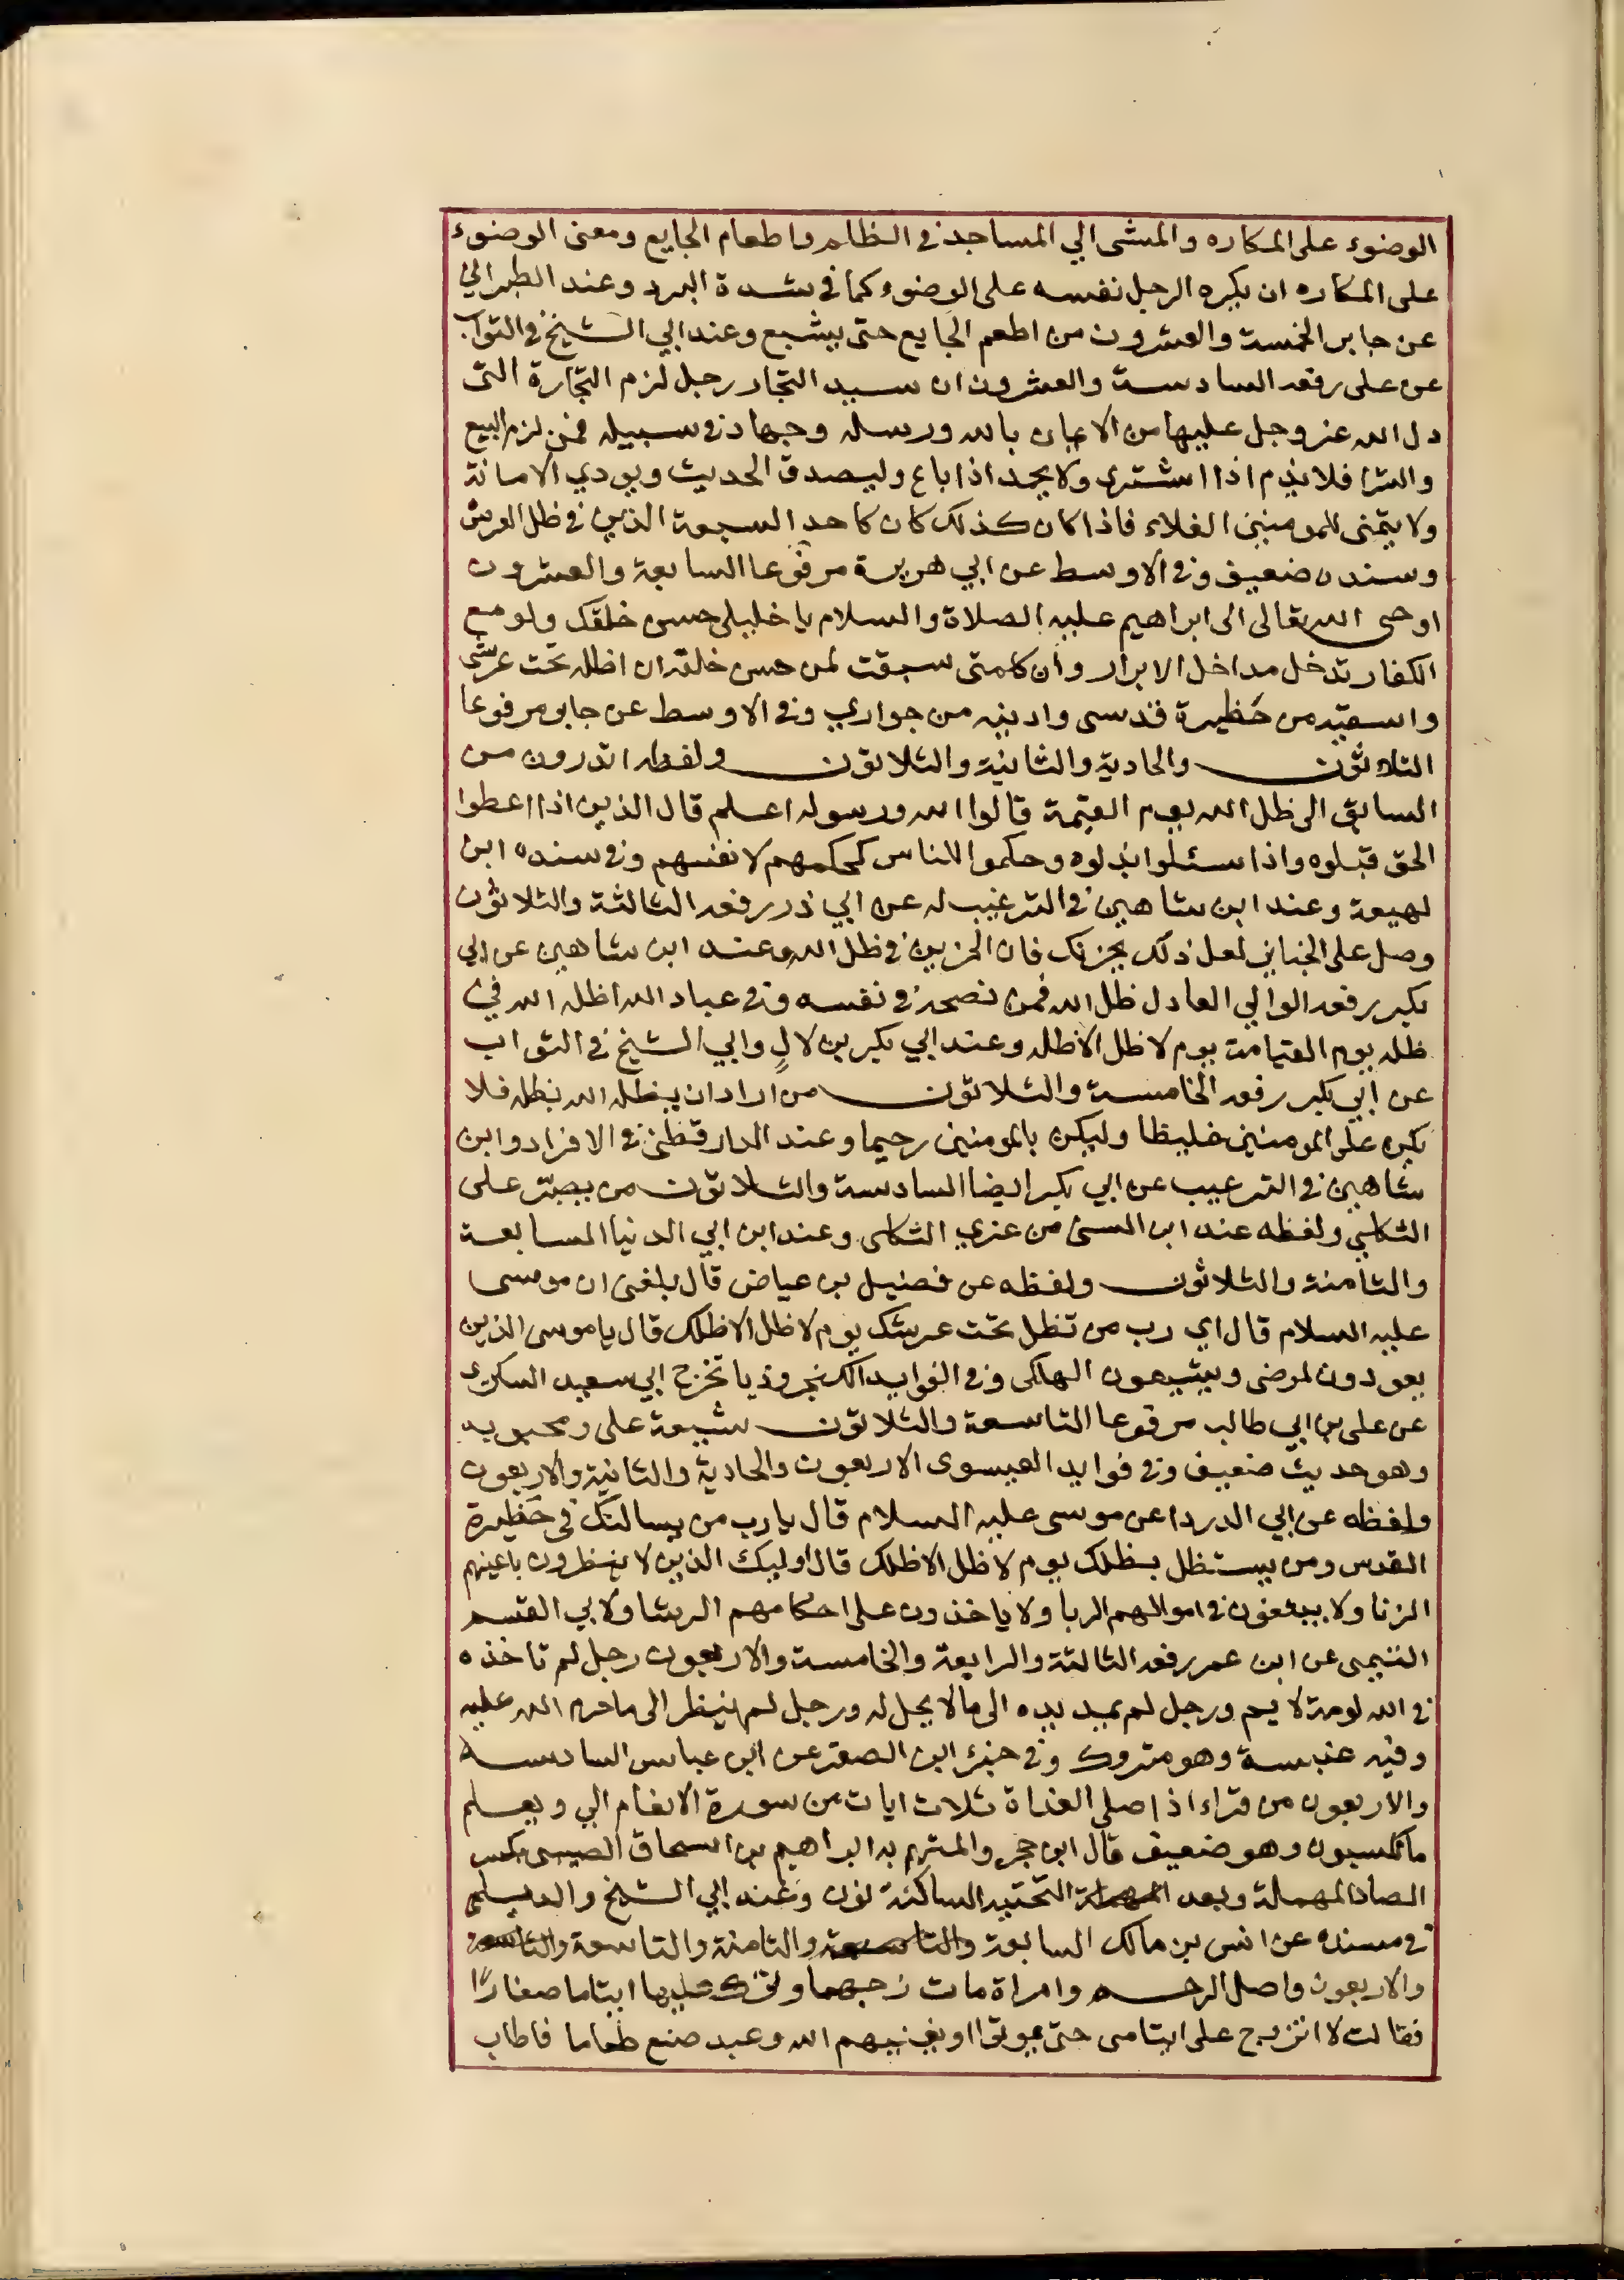 الوضوء على المكاره والمشي الي المساجد في الظلم واطعام الجايع ومعنى الوضوء
على المكاره ان يكره الرجل نفسه على الوضوء كما في شدة البرد وعند الطبراني
عن جابر الخمسة والعشرون من اطعم الجايع حتى يشبع وعند ابي الشيخ في الثواب
عن على رفعه السادسة والعشرون ان سيد التجار رجل لزم التجارة التى
دل الله عز وجل عليها من الايمان بالله ورسله وجهاد في سبيله فمن لزم البيع
والشرا فلا يذم اذا اشترى ولا يحمد اذا باع وليصدق الحديث ويودي الامانة
ولا يتمنى للمومنين الغلاء فاذا كان كذلك كان كاحد السبعة الذين في ظل العرش
وسنده ضعيف وفي الاوسط عن ابي هريرة مرفوعا السابعة والعشرون
اوحى الله تعالى الى ابراهيم عليه الصلاة والسلام يا خليلى حسن خلقك ولو مع
الكفار تدخل مداخل الابرار وان كلمتى سبقت لمن حسن خلقه ان اظله تحت عرشى
واسقيه من حظيرة قدسى وادنيه من جواري وفي الاوسط عن جابر مرفوعا
الثلاثون والحادية والثانية والثلاثون ولفظه اتدرون من
السابق الى ظل الله يوم القيمة قالوا الله ورسوله اعلم قال الذين اذا اعطوا
الحق قبلوه واذا سئلوا بذلوه وحكموا للناس كحكمهم لانفسهم وفي سنده ابن
لهيعة وعند ابن شاهين في الترغيب له عن ابي ذر رفعه الثالثة والثلاثون
وصل على الجنايز لعل ذلك يحزنك فان الحزين في ظل الله وعند ابن شاهين عن ابي
بكر رفعه الوالي العادل ظل الله فمن نصحه في نفسه وفي عباد الله اظله الله في
ظله يوم القيامة يوم لا ظل الا ظله وعند ابي بكر بن لال وابي الشيخ في الثواب
عن ابي بكر رفعه الخامسة والثلاثون من اراد ان يظله الله بظله فلا
يكن على المومنين غليظا وليكن بالمومنين رحيما وعند الدارقطني في الافراد وابن
شاهين في الترغيب عن ابي بكر ايضا السادسة والثلاثون من يصبر على
الثكلى ولفظه عند ابن السنى من عزي الثكلى وعند ابن ابي الدنيا السابعة
والثامنة والثلاثون ولفظه عن فضيل بن عياض قال بلغنى ان موسى
عليه السلام قال اي رب من تظل تحت عرشك يوم لا ظل الا ظلك قال يا موسى الذين
يعودون المرضى ويشيعون الهلكى وفي الفوايد الكنجروذيا تخرج ابي سعيد السكري
عن على بن ابي طالب مرفوعا التاسعة والثلاثون شيعة على ومحبويه
وهو حديث ضعيف وفي فوايد العيسوى الاربعون والحادية والثانية والاربعون
ولفظه عن ابي الدردا عن موسى عليه السلام قال يا رب من يساكنك في حظيرة
القدس ومن يستظل بظلك يوم لا ظل الا ظلك قال اوليك الذين لا ينظرون باعينهم
الزنا ولا يبتغون في اموالهم الربا ولا ياخذون على احكامهم الرشا ولابي القسم
التيمى عن ابن عمر رفعه الثالثة والرابعة والخامسة والاربعون رجل لم تاخذه
في الله لومة لايم ورجل لم يمد يده الى مالا يحل له ورجل لم ينظر الى ما حرم الله عليه
وفيه عنبسة وهو متروك وفي جزء ابن الصقر عن ابن عباس السادسة
والاربعون من قراء اذا صلى الغداة ثلاث ايات من سورة الانعام الي ويعلم
ما تكسبون وهو ضعيف قال ابن حجر والمتهم به ابراهيم بن اسحاق الصينى بكسر
الصاد المهملة وبعد التحتية الساكنة نون وعند ابي الشيخ والديلمى
في مسنده عن انس بن مالك السابعة والثامنة والتاسعة
والاربعون واصل الرحم وامراة مات زوجها وترك عليها ايتاما صغارًا
فقالت لا اتزوج على ايتامى حتى يموتوا او يغنيهم الله وعبد صنع طعاما فاطاب